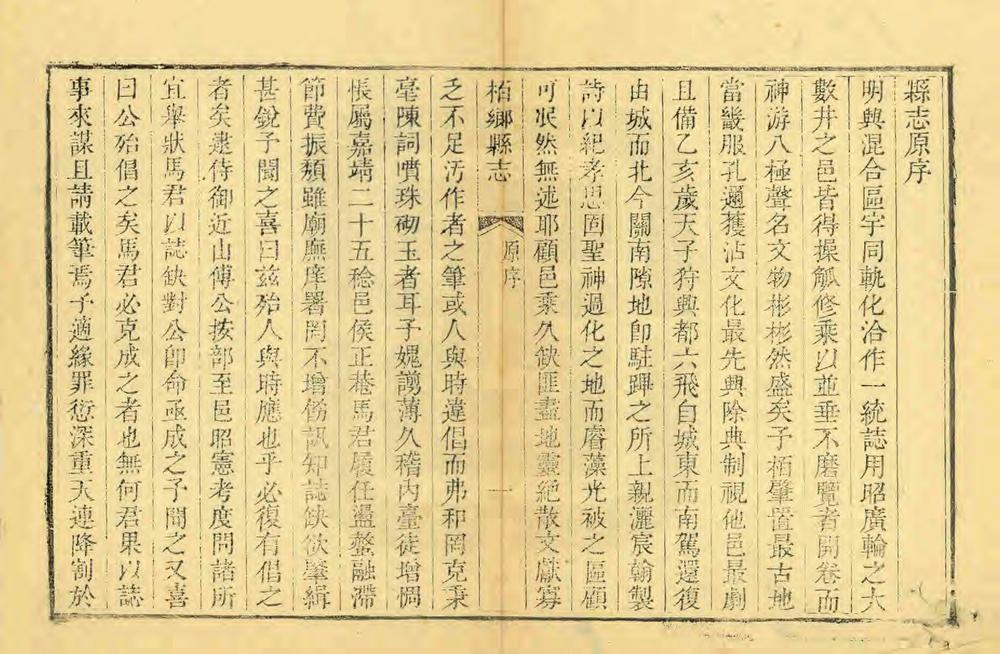 縣志原序
明興混合區宇同軌化洽作一統誌用昭廣輪之大
數井之邑皆得操觚修乘以並垂不磨覽者開卷而
神游八極聲名文物彬彬然盛矣予柏肇置最古地
當畿服孔邇獲沾文化最先興除典制視他邑最劇
且備乙亥歲天子狩興都六飛自城東而南駕還復
由城而北今關南隙地卽駐蹕之所上親灑宸翰製
詩以紀孝思固聖神過化之地而睿藻光被之區顧
可泯然無述耶顧邑乘久缺匪盡地靈絶散文獻寡
栢鄉縣志
原序
一
乏不足汚作者之筆或人與時違倡而弗和罔克秉
毫陳詞噴珠砌玉者耳予媿謭薄久稽內臺徒增惆
悵屬嘉靖二十五稔邑侯正菴馬君履任盪螯融滯
節費振頽雖廟廡庠署罔不增飭訊知誌缺欲肇緝
甚銳予聞之喜曰兹殆人與時應也乎必復有倡之
者矣逮侍御近山傅公按部至邑昭憲考度問諸所
宜舉狀馬君以誌缺對公卽命亟成之予聞之又喜
曰公殆倡之矣馬君必克成之者也無何君果以誌
事來謀且請載筆焉予適緣罪愆深重天連降割於